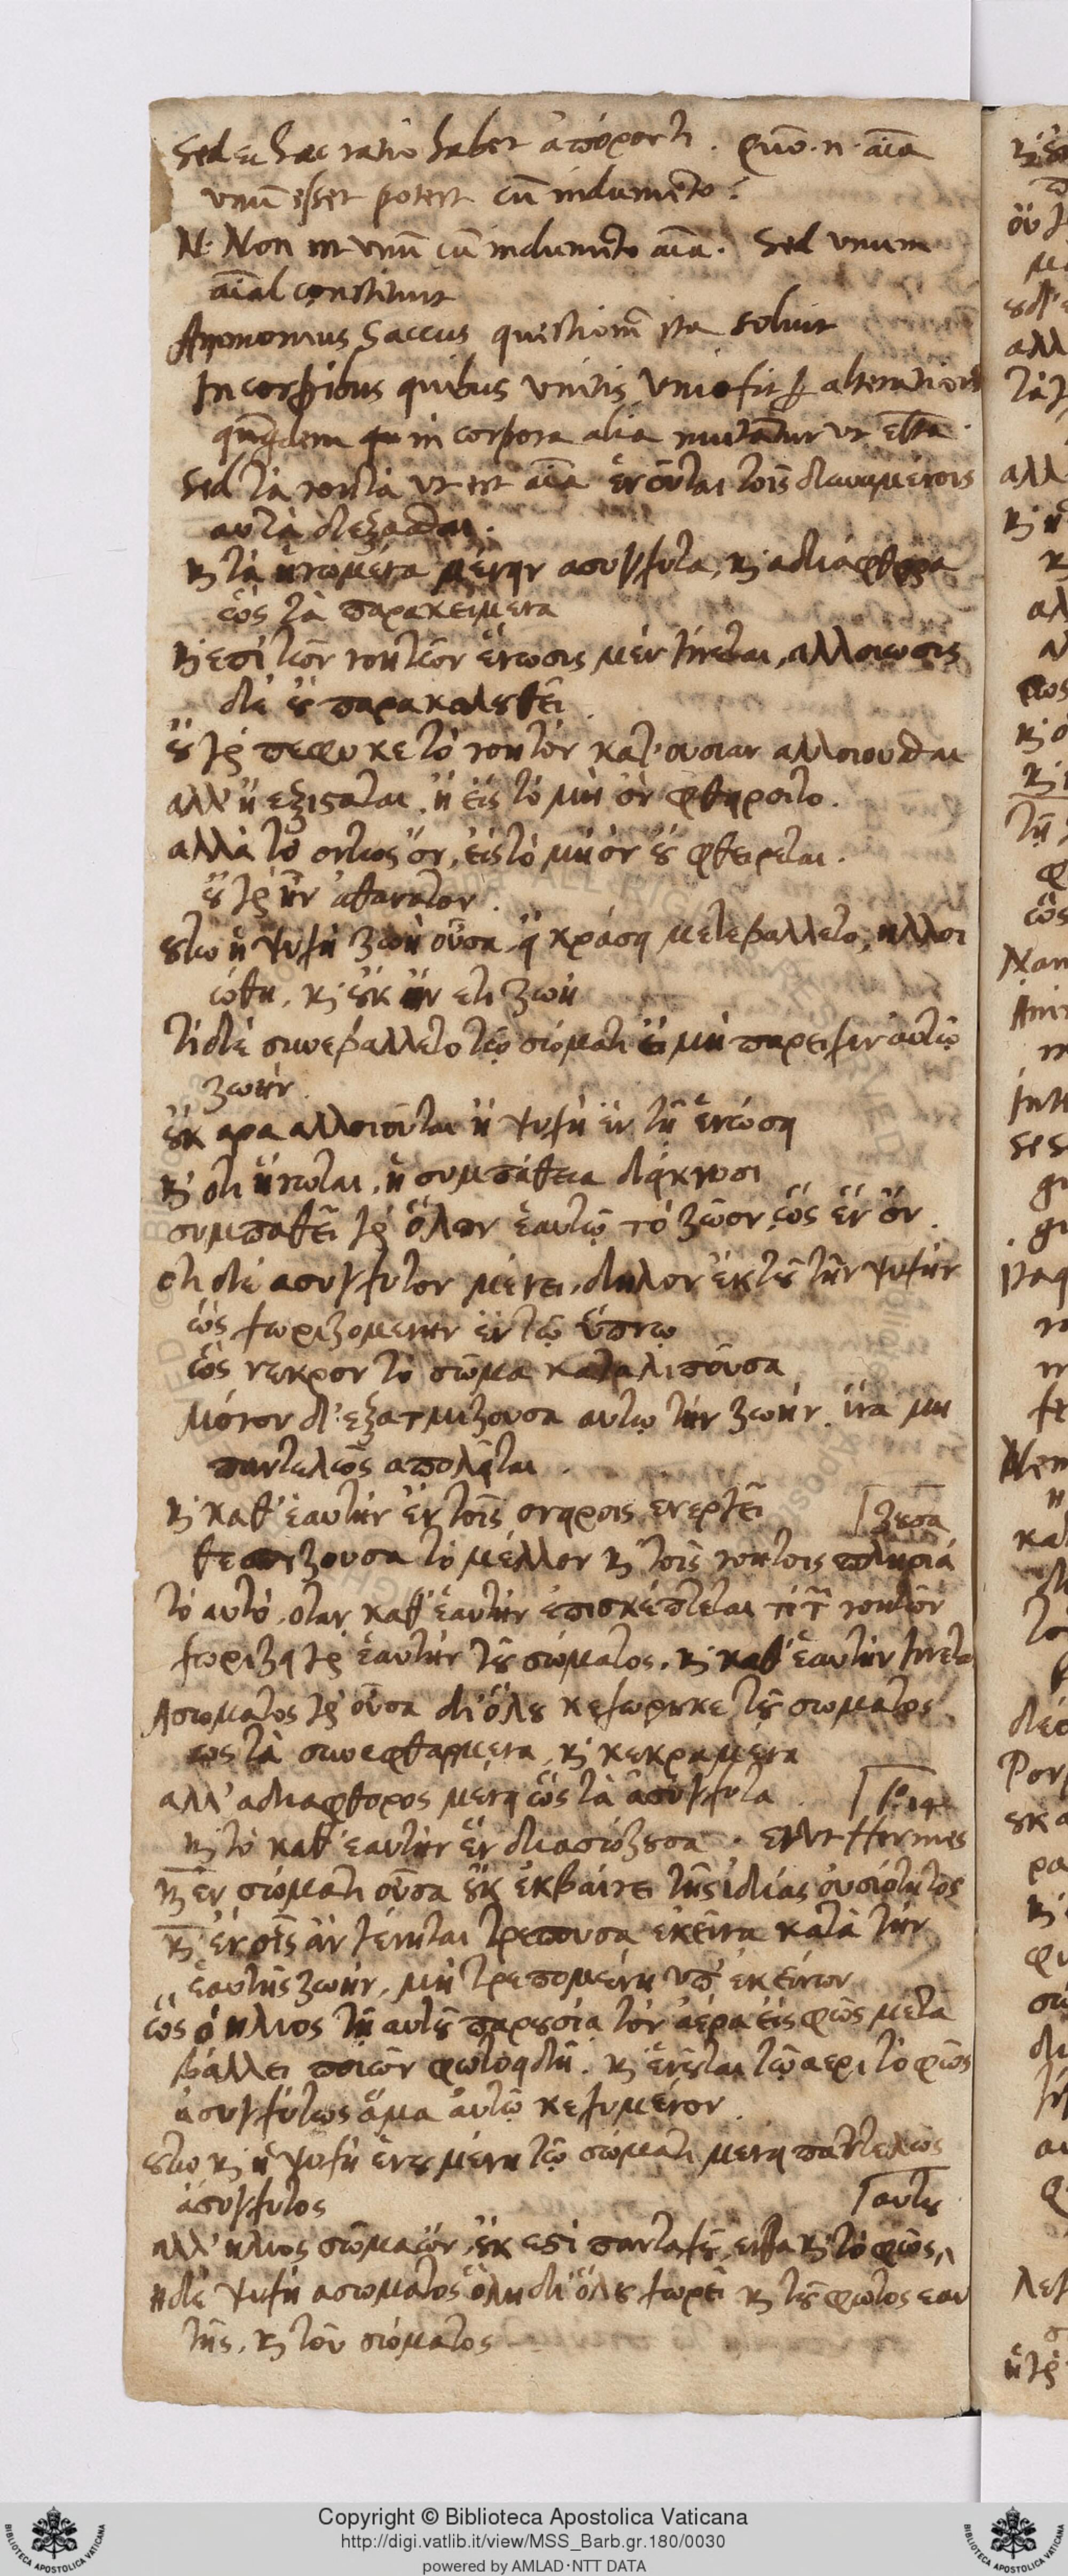 Sed & haec ratio habet ἄπορόν τι. Quo. n. aīa
unū esset potest cū indumēto?
N. Non in unū cū indumēto aīa. Sed unum
aīal constituit
Ammonius Saccus questionē ita soluit
In corpibus quibus unitis unio fit
quidem in corpora alia mutātur ut
Sed τὰ νοητὰ ut est aīa ἑνοῦται τοῖς δυναμένοις
αυτὰ δέξασθαι.
κ τὰ ἡνωμένα μένειν ασυγχυτα, κ αδιάφθορα
ὡς τὰ παρακείμενα
κ επὶ τῶν νοητῶν ἕνωσις μὲν γίνεται, αλλοιωσις
δὲ ȣ παρακολȣθεῖ
ȣ γὰρ πεφυκε τὸ νοητὸν κατ' ουσιαν αλλοιουσθαι
αλλ' ἢ εξιςαται, ἢ εἰς τὸ μὴ ὂν φθείροιτο.
αλλὰ τὸ οντως ὂν, εἰς τὸ μὴ ὂν ȣ φθειρεται.
ȣ γὰρ ἦν ἀθανατον.
ȣτω ἡ ψυχὴ ζωὴ οὖσα, ει κράσει μετεβαλλετο, ηλλοι
ώθη, κ ȣκ ἦν ετι ζωή
τί δὲ συνεβάλλετο τῷ σώματι εἰ μὴ παρεῖχεν αὐτῷ
ζωήν.
ȣκ αρα αλλοιοῦται ἡ ψυχὴ ἐν τῇ ἑνώσει
κ ὅτι ἥνωται, ἡ συμπάθεια δείκνυσι
συμπαθεῖ γὰρ ὅλον ἑαυτῷ τὸ ζῶον, ὡς ἓν ὄν.
οτι δὲ ασυγχυτον μένει, δηλον ἐκ τȣ τὴν ψυχὴν
ὡς χωριζομενην ἐν τῷ ὕπνῳ
ὡς νεκρον τὸ σῶμα καταλιποῦσα
μόνον δ' εξατμιζουσα αυτῳ τὴν ζωήν, ἵνα μη
παντελῶς απολῆται.
κ καθ' ἑαυτὴν ἐν τοῖς ονείροις ενεργεῖ
θεσπιζουσα τὸ μελλον κ τοῖς νοητοις πλησιά ζȣσα
τὸ αυτὸ, οταν καθ' ἑαυτὴν ἐπισκέπτεται τὶ τ νοητῶν
χωριζει γὰρ ἑαυτὴν τȣ σώματος, κ καθ' ἑαυτὴν γίνετα
Ασωματος γὰρ οὖσα δι' ὅλȣ κεχωρηκε τȣ σωματος
ως τὰ συνεφθαρμενα, κ κεκραμένα
αλλ' αδιαφθορος μένει ὡς τὰ ἀσύγχυτα
κ τὸ καθ' ἑαυτὴν ἓν διασώζȣσα. Hermes
κ ἐν σώματι οὖσα ȣκ ἐκβαίνει τῆς ἰδίας οὐσιότητος
κ ἐν οἷς ἂν γένηται τρεπουσα ἐκεῖνα κατὰ τὴν
ἑαυτῆς ζωήν, μὴ τρεπομένη υπ' ἐκείνων
ὡς ὁ ἥλιος τῇ αυτȣ παρȣσία τὸν ἀέρα εἰς φῶς μετα
βάλλει ποιῶν φωτοειδῆ. κ ἑνȣται τῷ αερι τὸ φῶς
ἀσυγχύτως ἅμα ἀυτῷ κεχυμένον.
ȣτω κ ἡ ψυχὴ ἑνȣμένη τῷ σώματι μενει παντελῶς
ἀσυγχυτος
αλλ' ἥλιος σῶμα ὤν, ȣκ εςὶ πανταχȣ, ενθα κ τὸ φῶς αυτȣ
ἡ δὲ ψυχὴ ασωματος ὅλη δι' ὅλȣ χωρεῖ κ τȣ φωτος εαυ
τῆς, κ τοῦ σώματος
Copyright © Biblioteca Apostolica Vaticana
http://digi.vatlib.it/view/MSS_Barb.gr.180/0030
powered by AMLAD·NTT DATA